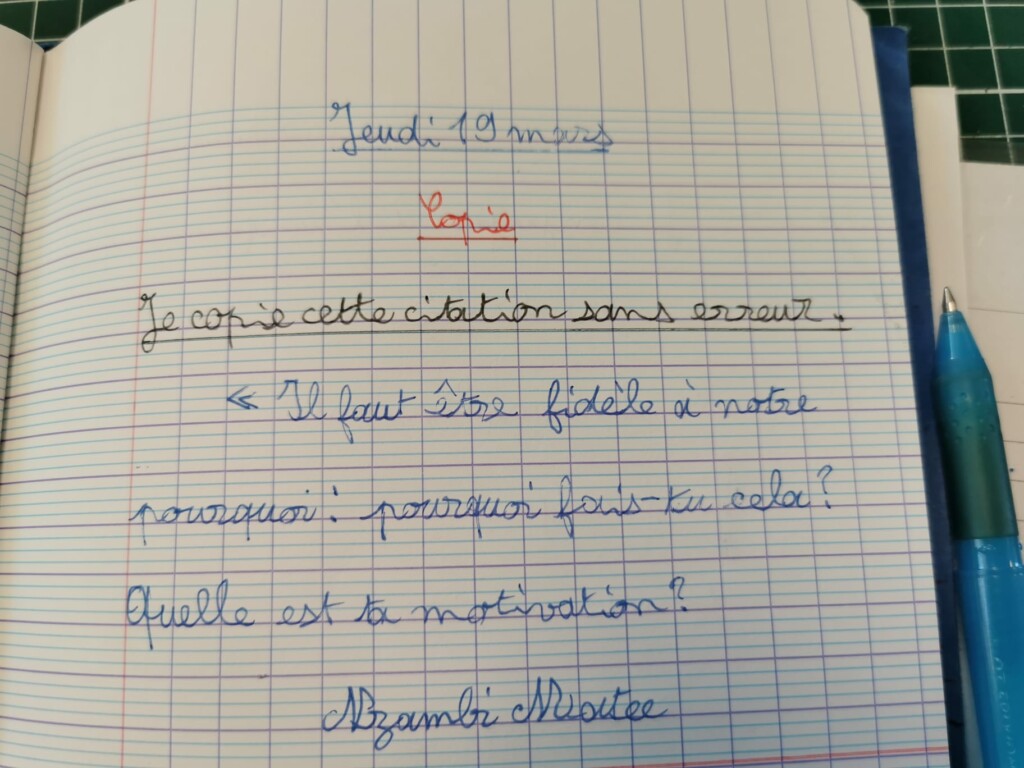 Jeudi 19 mars
Copie
Je copie cette citation sans erreur.
« Il faut être fidèle à notre
pourquoi : pourquoi fais-tu cela ?
Quelle est ta motivation ?
Nzambi Matee